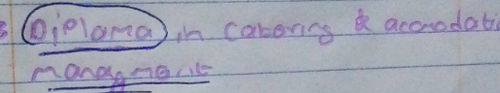 Diploma in Catering & acomodati
managment